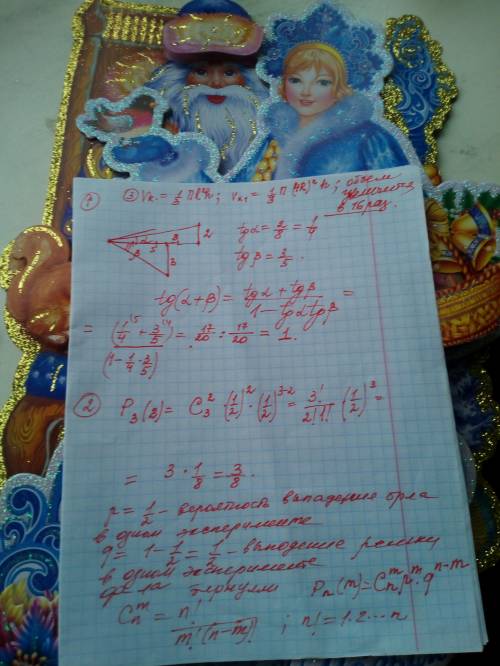 ① ③ Vк. = 1/3 ПR²h; Vк₁ = 1/3 П(4R)²h; объем
увеличится
в 16 раз.
tgα = 2/8 = 1/4
2
α 5 8
β
3
tgβ = 3/5.
tg(α+β) = (tgα + tgβ)/(1 - tgα tgβ) =
= (1/4 \5 + 3/5 \4)/(1 - 1/4 · 3/5) = 17/20 : 17/20 = 1.
② P₃(2) = C₃² (1/2)² · (1/2)³⁻² = 3!/(2!1!) (1/2)³ =
= 3 · 1/8 = 3/8.
p = 1/2 - вероятность выпадение орла
в одном эксперименте
q = 1 - 1/2 = 1/2 - выпадение решки
в одном эксперименте
Pₙ(m) = Cₙᵐ pᵐ · qⁿ⁻ᵐ
Cₙᵐ = n!/(m!(n-m)!) ; n! = 1·2·... n